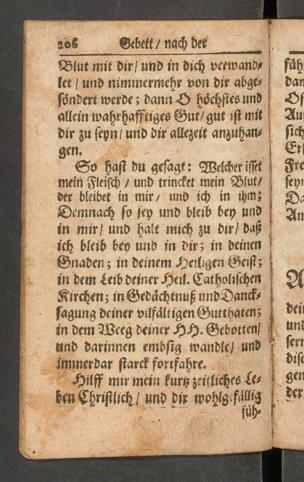 206 Gebett / nach der
Blut mit dir / und in dich verwand-
let / und nimmermehr von dir abge-
söndert werde ; dann O höchstes und
allein wahrhafftiges Gut / gut ist mit
dir zu seyn / und dir allezeit anzuhan-
gen.
So hast du gesagt : Welcher isset
mein Fleisch / und trincket mein Blut /
der bleibet in mir / und ich in ihm ;
Demnach so sey und bleib bey und
in mir / und halt mich zu dir / daß
ich bleib bey und in dir ; in deinen
Gnaden ; in deinem Heiligen Geist ;
in dem Leib deiner Heil. Catholischen
Kirchen ; in Gedächtnuß und Danck-
sagung deiner vilfältigen Gutthaten ;
in dem Weeg deiner H H. Gebotten /
und darinnen embsig wandle / und
immerdar starck fortfahre.
Hilff mir mein kurtz zeitliches Le-
ben Christlich / und dir wohlgefällig
füh-